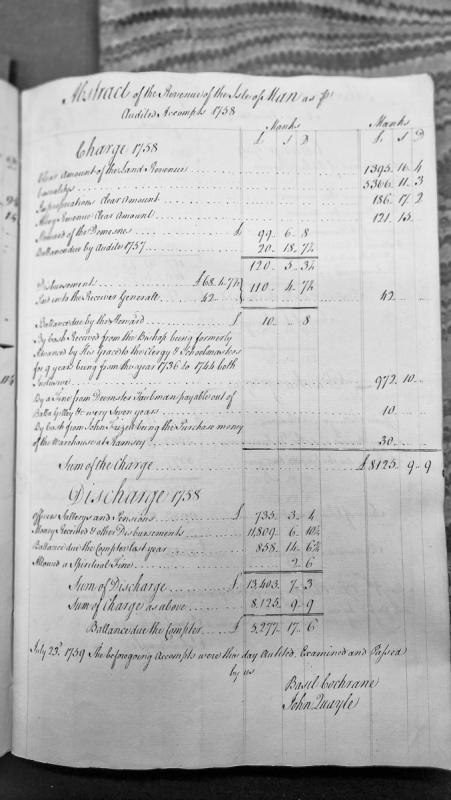 Abstract of the Revenue of the Isle of Man as pr
Audited Accompts 1758
Manks Manks
£ S D £ S D
Charge 1758
Clear Amount of the Land Revenue 1395 16 4
Casualtys 5366 11 3
Impropriations clear Amount 186 17 2
Abbey Revenue clear Amount 121 15
Steward of the Demesne £ 99 6 8
Ballance due by Audite 1757 20 18 7½
120 5 3½
Disbursement £68 4 7½
Paid into the Receiver Generall 42 } 110 4 7½ 42
Ballance due by the Steward £ 10 8
By Cash Received from the Bishop being formerly
Advanced by His Grace to the Clergy & Schoolmasters
for 9 years being from the year 1736 to 1744 both
Inclusive 972 10
By a Fine from Deemster Taubman payable out of
Balla Gilley &c every Seven years 10
By Cash from John Frizell being the Purchase money
of the Warehouse at Ramsey 30
Sum of the Charge £ 8125 9 9
Discharge 1758
Officers Sallerys and Pensions £ 735 3 4
Money Received & other Disbursements 11,809 6 10½
Ballance due the Compter last year 858 14 6½
Allowed a Spiritual Fine 2 6
Sum of Discharge £ 13,403 7 3
Sum of Charge as above 8,125 9 9
Ballance due the Compter £ 5,277 17 6
July 23d 1759 The beforegoing Accompts were this day Audited, Examined and Passed
by us
Basil Cochrane
John Quayle